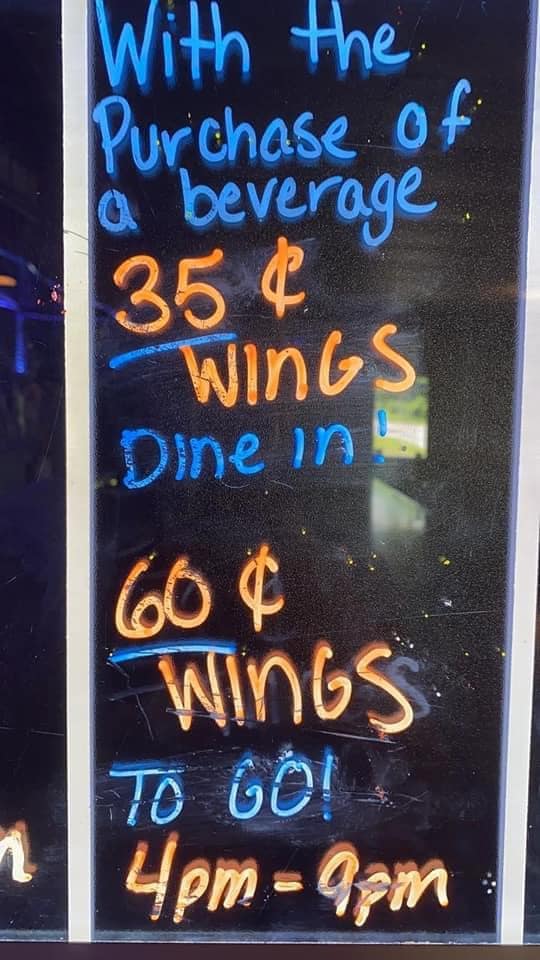 With the
Purchase of
a beverage
35 ¢
WINGS
Dine in!
60 ¢
WINGS
TO GO!
4pm - 9pm